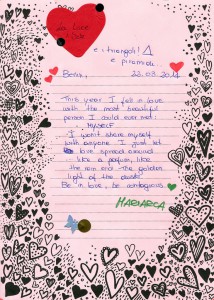 e i triangoli! Δ
e piramidi...
Berlin, 22.03.2014
This year I fell in love
with the most beautiful
person I could ever met:
MYSELF
I won't share myself
with anyone. I just let
love spread around
like a perfum, like
the rain and the golden
light of the
Be in love, be contagious.
MARIARCA